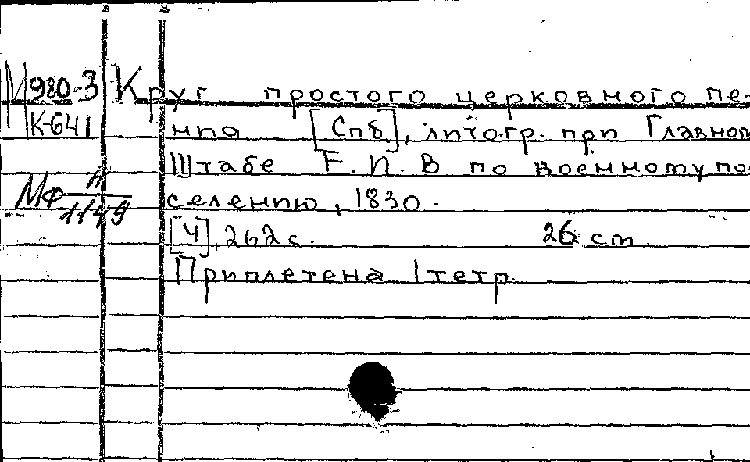 М980-3
К-641
Круг простого церковного пе-
ния [Спб], литогр. при Главном
Штабе Е.И.В по военному по-
селению, 1830.
МФ А/1149
[4], 262 с. 26 cm
Приплетена 1 тетр.